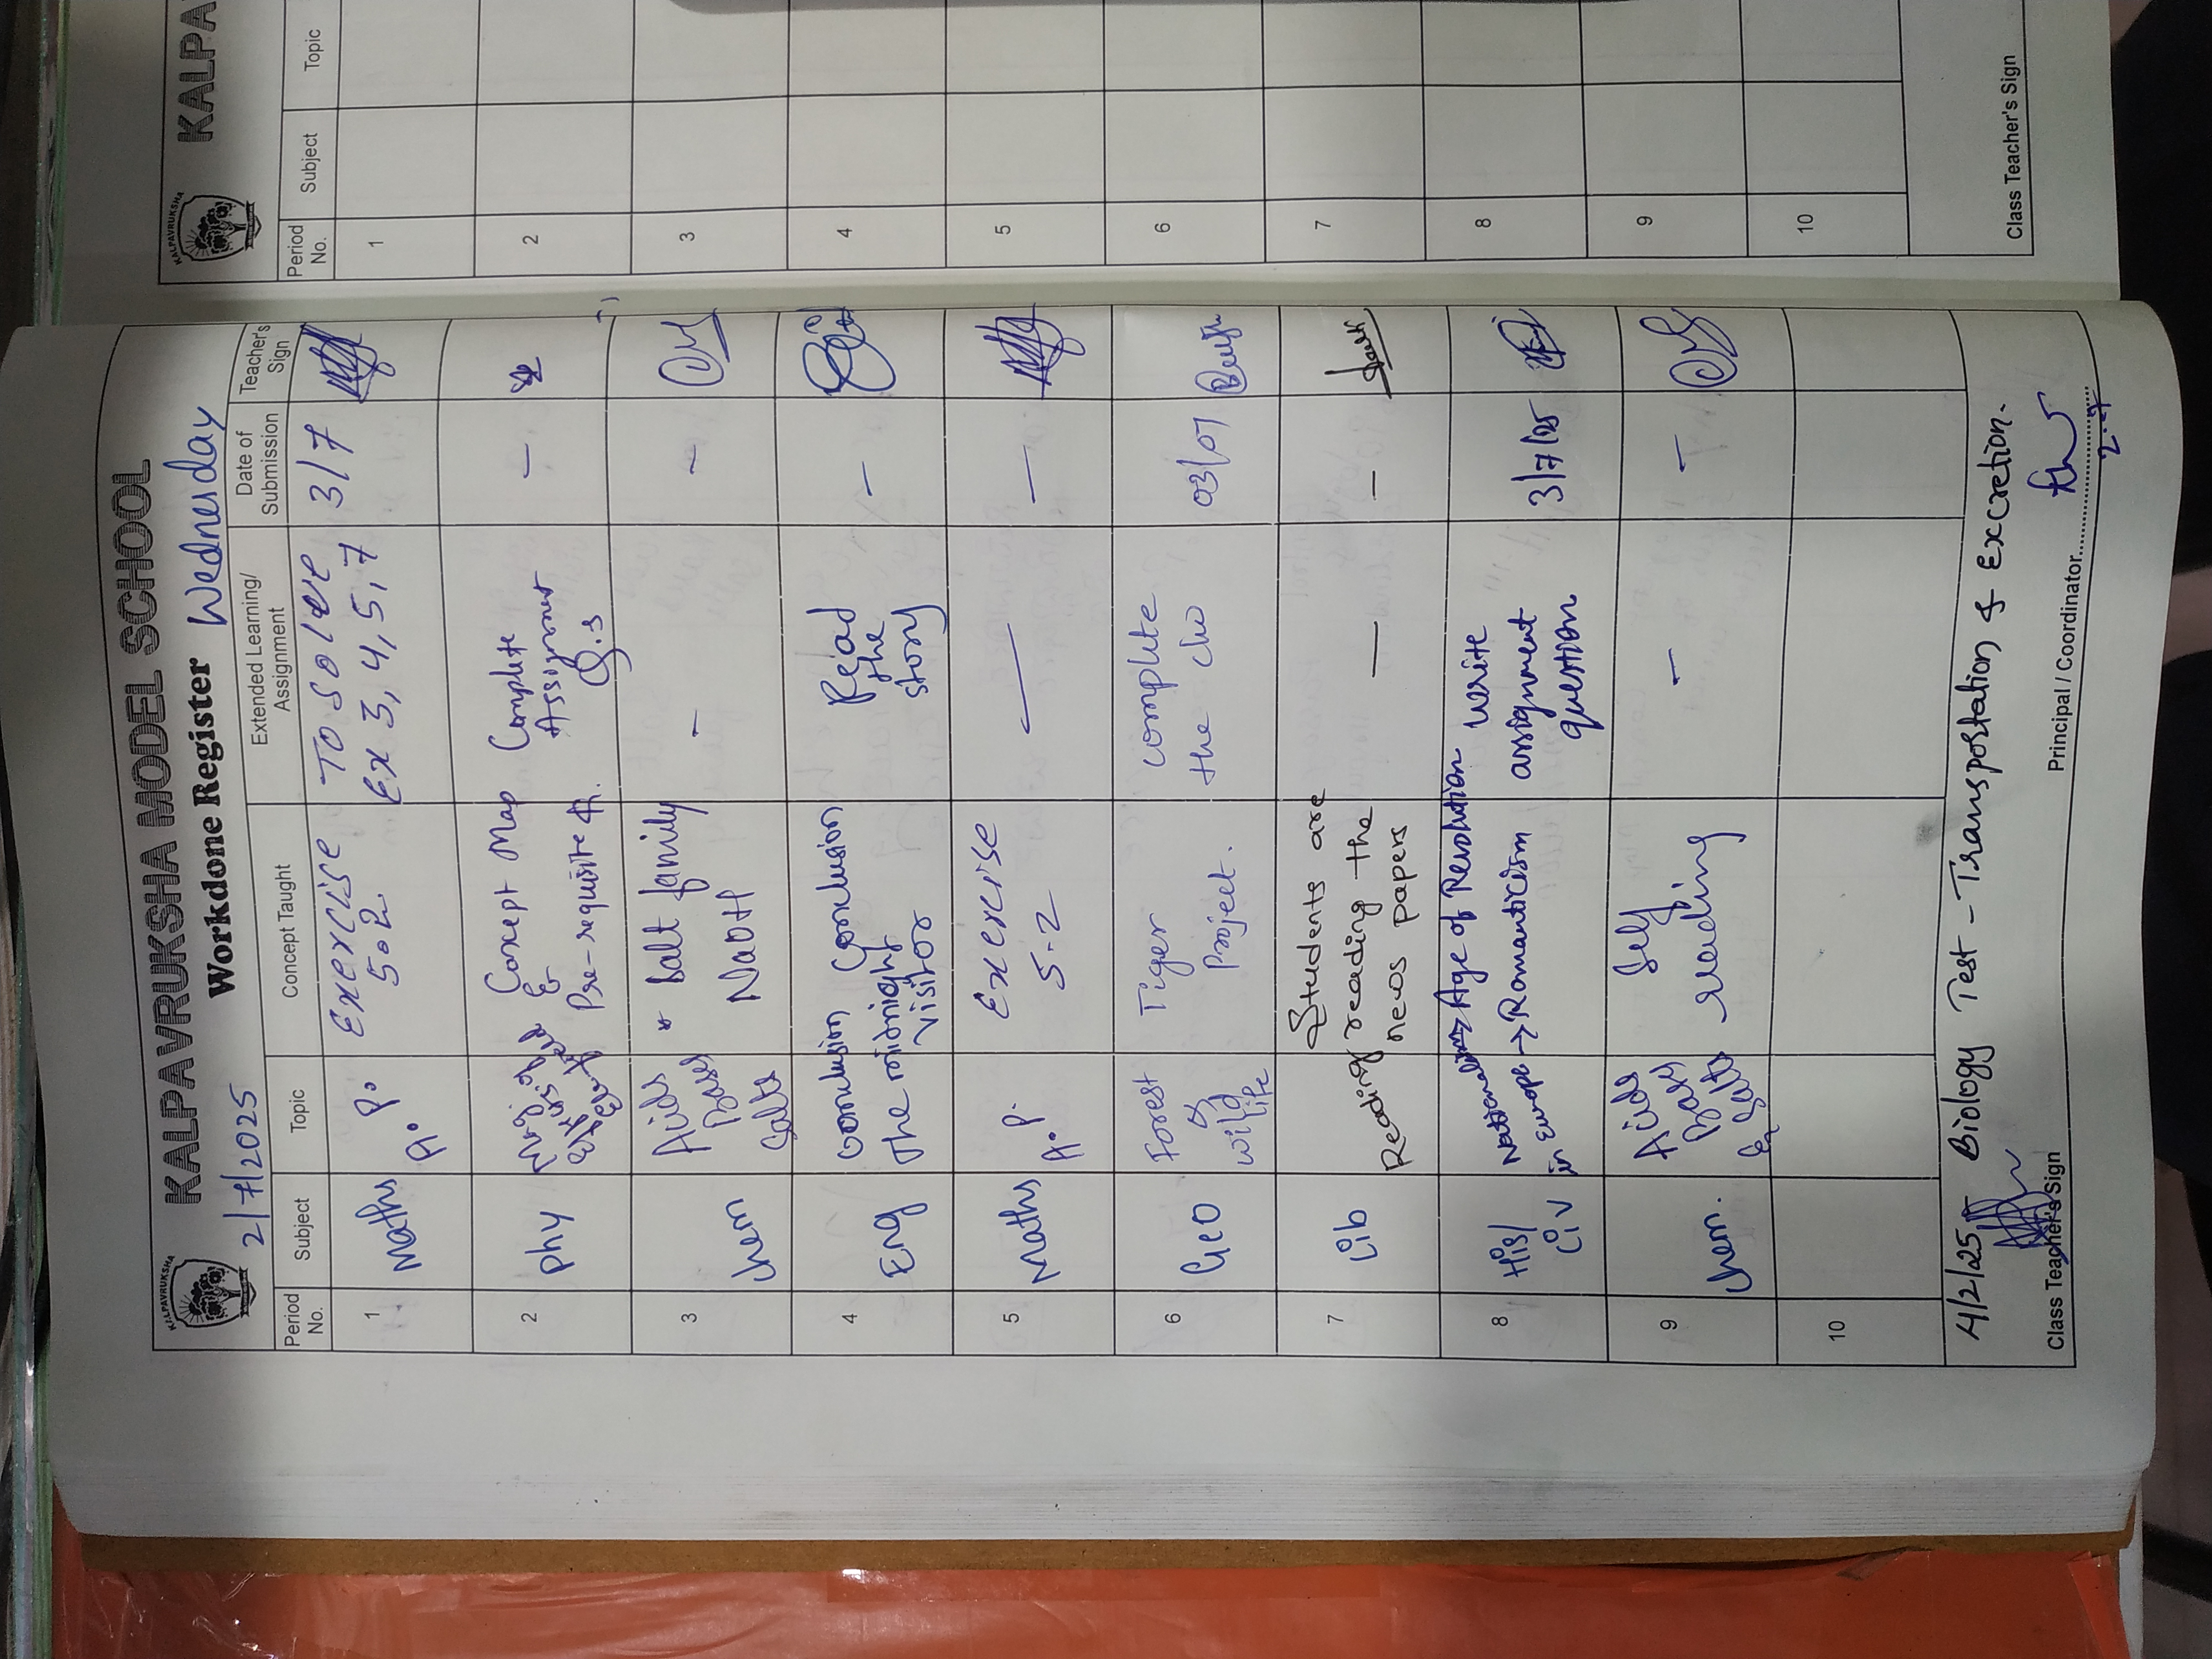 KALPAVRUKSHA
KALPAVRUKSHA MODEL SCHOOL
2/7/2025 Workdone Register Wednesday
Period No. Subject Topic Concept Taught Extended Learning/ Assignment Date of Submission Teacher's Sign
1 Maths A.P. Exercise 5.2 To solve Ex 3, 4, 5, 7 3/7
2 Phy Concept Map & Pre-requisite Complete Assignment Q.s —
3 Chem Acids Bases Salts * Salt family NaOH — —
4 Eng Conclusion The midnight visitor Conclusion Read the story —
5 Maths A.P. Exercise 5.2 — —
6 Geo Forest & wild life Tiger Project. complete the cho 03/07
7 Lib Reading Students are reading the news papers — —
8 His/ Civ Nationalism in Europe → Age of Revolution → Romanticism write assignment question 3/7/25
9 Chem. Acids Bases & Salts Self reading — —
10
4/2/25 Biology Test - Transpostation & Excretion.
Class Teacher's Sign Principal / Coordinator
2.7
KALPAVRUKSHA
KALPA
Period No. Subject Topic
1
2
3
4
5
6
7
8
9
10
Class Teacher's Sign